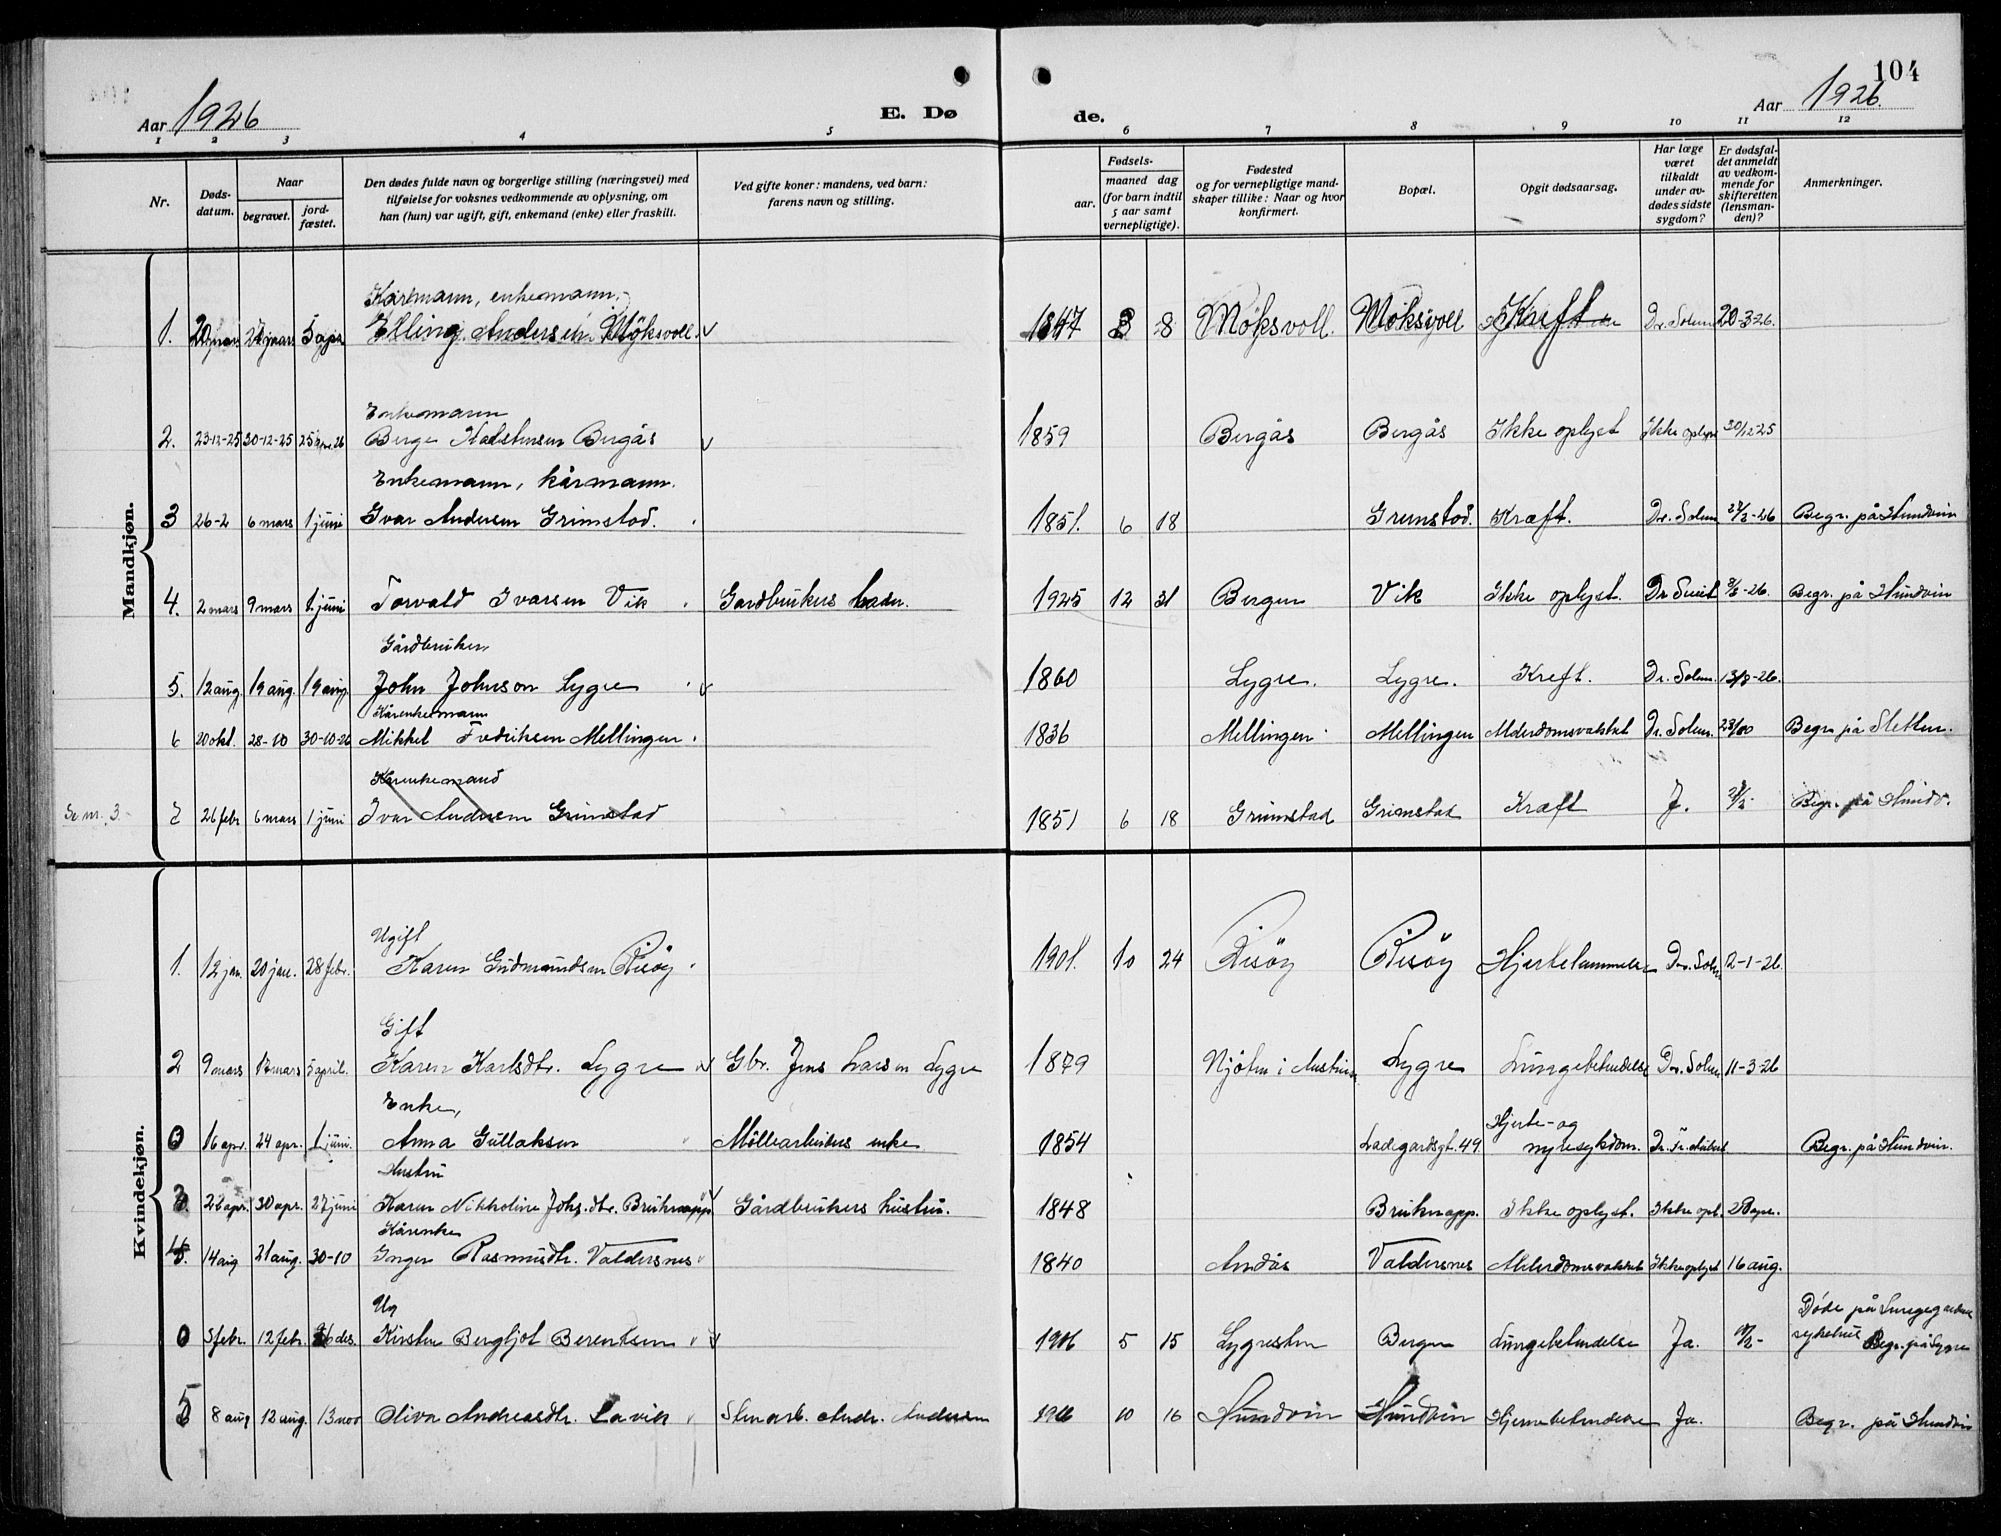 104
Aar 1926
E. Dø
de.
Aar 1926.
1 2 3 4 5 6 7 8 9 10 11 12
Nr.
Døds-
datum.
Naar
begravet.
jord-
fæstet.
Den dødes fulde navn og borgerlige stilling (næringsvei) med
tilføielse for voksnes vedkommende av oplysning, om
han (hun) var ugift, gift, enkemand (enke) eller fraskilt.
Ved gifte koner: mandens, ved barn:
farens navn og stilling.
Fødsels-
aar.
maaned dag
(for barn indtil
5 aar samt
vernepligtige).
Fødested
og for vernepligtige mand-
skaper tillike: Naar og hvor
konfirmert.
Bopæl.
Opgit dødsaarsag.
Har læge
været
tilkaldt
under av-
dødes sidste
sygdom?
Er dødsfal-
det anmeldt
av vedkom-
mende for
skifteretten
(lensman-
den)?
Anmerkninger.
Mandkjøn.
Kårmann, enkemann,
1. 5 apr. Elling Andersen Møksvoll. 1847 3 8 Møksvoll. Møksvoll Kræft Dr. Solem 20-3-26.
Enkemann
2. 23-12-25 30-12-25 25 26 Berge Bergås 1859 Bergås Bergås Ikke oplyst Ikke oplyst 30/12 25
Enkemann, kårmann.
3 26-2 6 mars 1 juni Ivar Andersen Grimstad. 1851. 6 18 Grimstad. Kræft. Dr. Solem 27/2-26 Begr. på Hundvin
4. 2 mars 9 mars 1 juni Torvald Ivarsen Vik Gardbrukers barn. 1925 12 31 Bergen Vik Ikke oplyst. Dr 3/3-26. Begr. på Hundvin
Gårdbruker
5. 12 aug. 19 aug. 19 aug. John Johnson Lygre 1860 Lygre. Lygre. Kreft. Dr. Solem. 13/8-26.
Kårenkemann
6 20 okt. 28-10 30-10-26 Mikkel Fredriksen Mellingen. 1836 Mellingen Mellingen Alderdomsvakhet Dr. Solem. 23/10 Begr. på Sletten.
Kårenkemand
Se nr. 3. 7 26 febr 6 mars 1 juni Ivar Andersen Grimstad 1851 6 18 Grimstad Grimstad Kræft J. 27/2- Begr. på Hundv.
Kvindekjøn.
Ugift
1. 12 jan. 20 jan. 28 febr. Karen Gudmundsen Risøy 1901. 10 24 Risøy Risøy Hjertelammelse Dr. Solem 12-1-26.
Gift
2 9 mars 17 mars 5 april. Karen Karlsdtr. Lygre Gbr. Jens Larsen Lygre 1879 Njøten i Austrheim Lygre Lungebetendelse Dr. Solem 11-3-26
Enke,
0 16 apr. 24 apr. 1 juni. Anna Gullaksen Møllearbeiders enke 1854 Ladegardsgt. 49 Hjerte- og
nyresykdom. Dr. Fr. Begr. på Hundvin.
Hustru
3. 26 apr. 30 apr. 27 juni Karen Nikkoline Johs.dtr. Bruknapp Gårdbrukers hustru. 1848 Bruknapp. Ikke oplyst. Ikke opl. 28 apr.
Kårenke
4. 14 aug 21 aug. 30-10 Inger Rasmusdtr. Valdersnes 1840 Andås Valdersnes Alderdomsvakhet Ikke oplyst 16 aug.
Ug Døde på
0 5 febr. 12 febr. des. Kirsten Bergljot Berentsen 1906 5 15 Bergen Lungebetendelse Ja. sykehus Begr. på Lygre
5 8 aug 12 aug. 13 nov Oliva Andreasdtr. Lavik Stenarb. Andr. Andersen 10 16 Hundvin Hundvin Hjernebetendelse Ja. Begr. på Hundvin